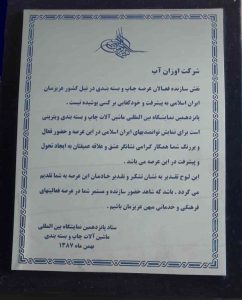 شرکت اوزان آب
نقش سازنده فعالان عرصه چاپ و بسته بندی در نیل کشور عزیزمان
ایران اسلامی به پیشرفت و خودکفایی بر کسی پوشیده نیست .
پانزدهمین نمایشگاه بین المللی ماشین آلات چاپ و بسته بندی ویترینی
است برای نمایش توانمندیهای ایران اسلامی در این عرصه و حضور فعال
و پررنگ شما همکار گرامی نشانگر عشق و علاقه عمیقتان به ایجاد تحول
و پیشرفت در این عرصه می باشد .
این لوح تقدیر به نشان تشکر و تقدیر خادمان این عرصه به شما تقدیم
می گردد . باشد که شاهد حضور سازنده و مستمر شما در عرصه فعالیتهای
فرهنگی و خدماتی میهن عزیزمان باشیم .
ستاد پانزدهمین نمایشگاه بین المللی
ماشین آلات چاپ و بسته بندی
بهمن ماه ۱۳۸۷